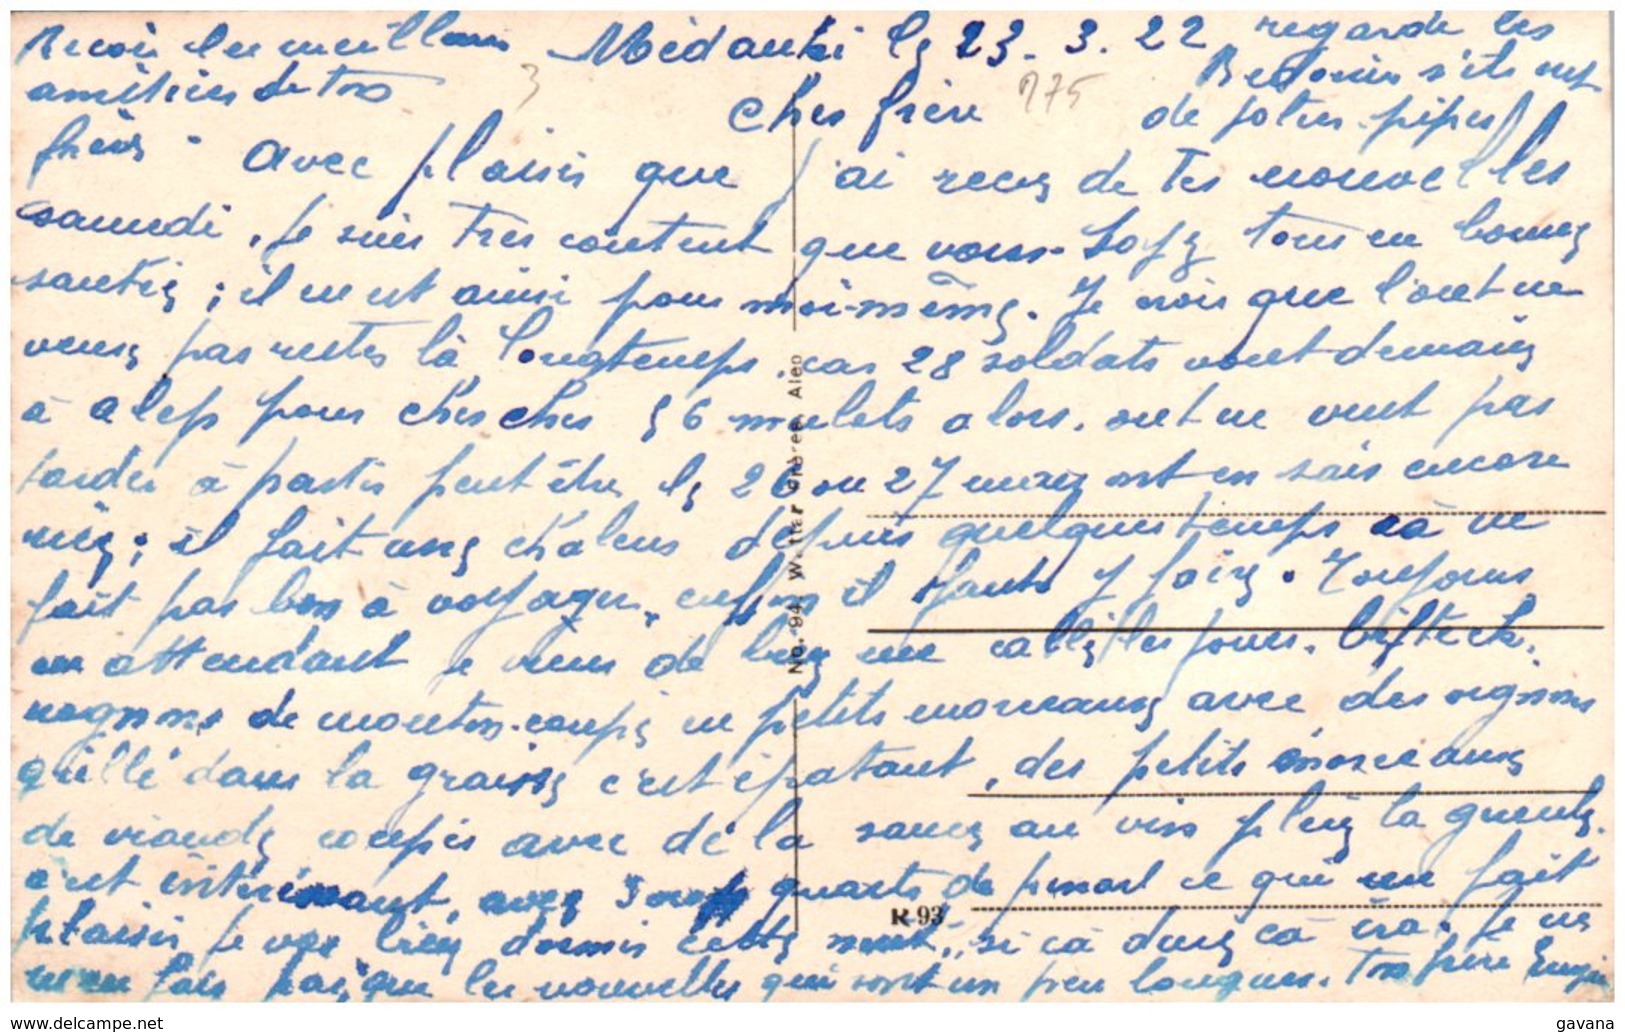 Médanki le 23.3.22
Cher frère
Avec plaisir que j'ai reçu de tes nouvelles
samedi, je suis très content que vous soyez tous en bonne
santée ; il en est ainsi pour moi-même. Je crois que l'on ne
vas pas rester là longtemps, car 28 soldats vont demain
à alep pour chercher 56 mulets alors, on ne veut pas
tarder à partir peut être le 26 ou 27 mais on en sais encore
rien ; il fait une chaleur depuis quelques temps cà ne
fait pas bon à voyager, enfin il faut y faire. Toujours
en attendant je viens de bien me caller les joues. bifteck,
rognons de mouton coupé en petits morceaux avec des oignons
grillé dans la graisse c'est épatant, des petits morceaux
de viande coupés avec de la sauce au vin plein la gueule.
c'est intéressant, avec 3 quarts de pinard ce qui me fait
plaisir je vas bien dormir cette nuit, si cà dure cà ira. Je ne
m'en fais pas que les nouvelles qui sont un peu longues. Ton frère
Recois les meilleures
amitiées de ton
frère
regarde les
Bedouins s'ils ont
de jolies pipes
3
275
No. 94. Wattar Frères Alep
R 93
www.delcampe.net
gavana